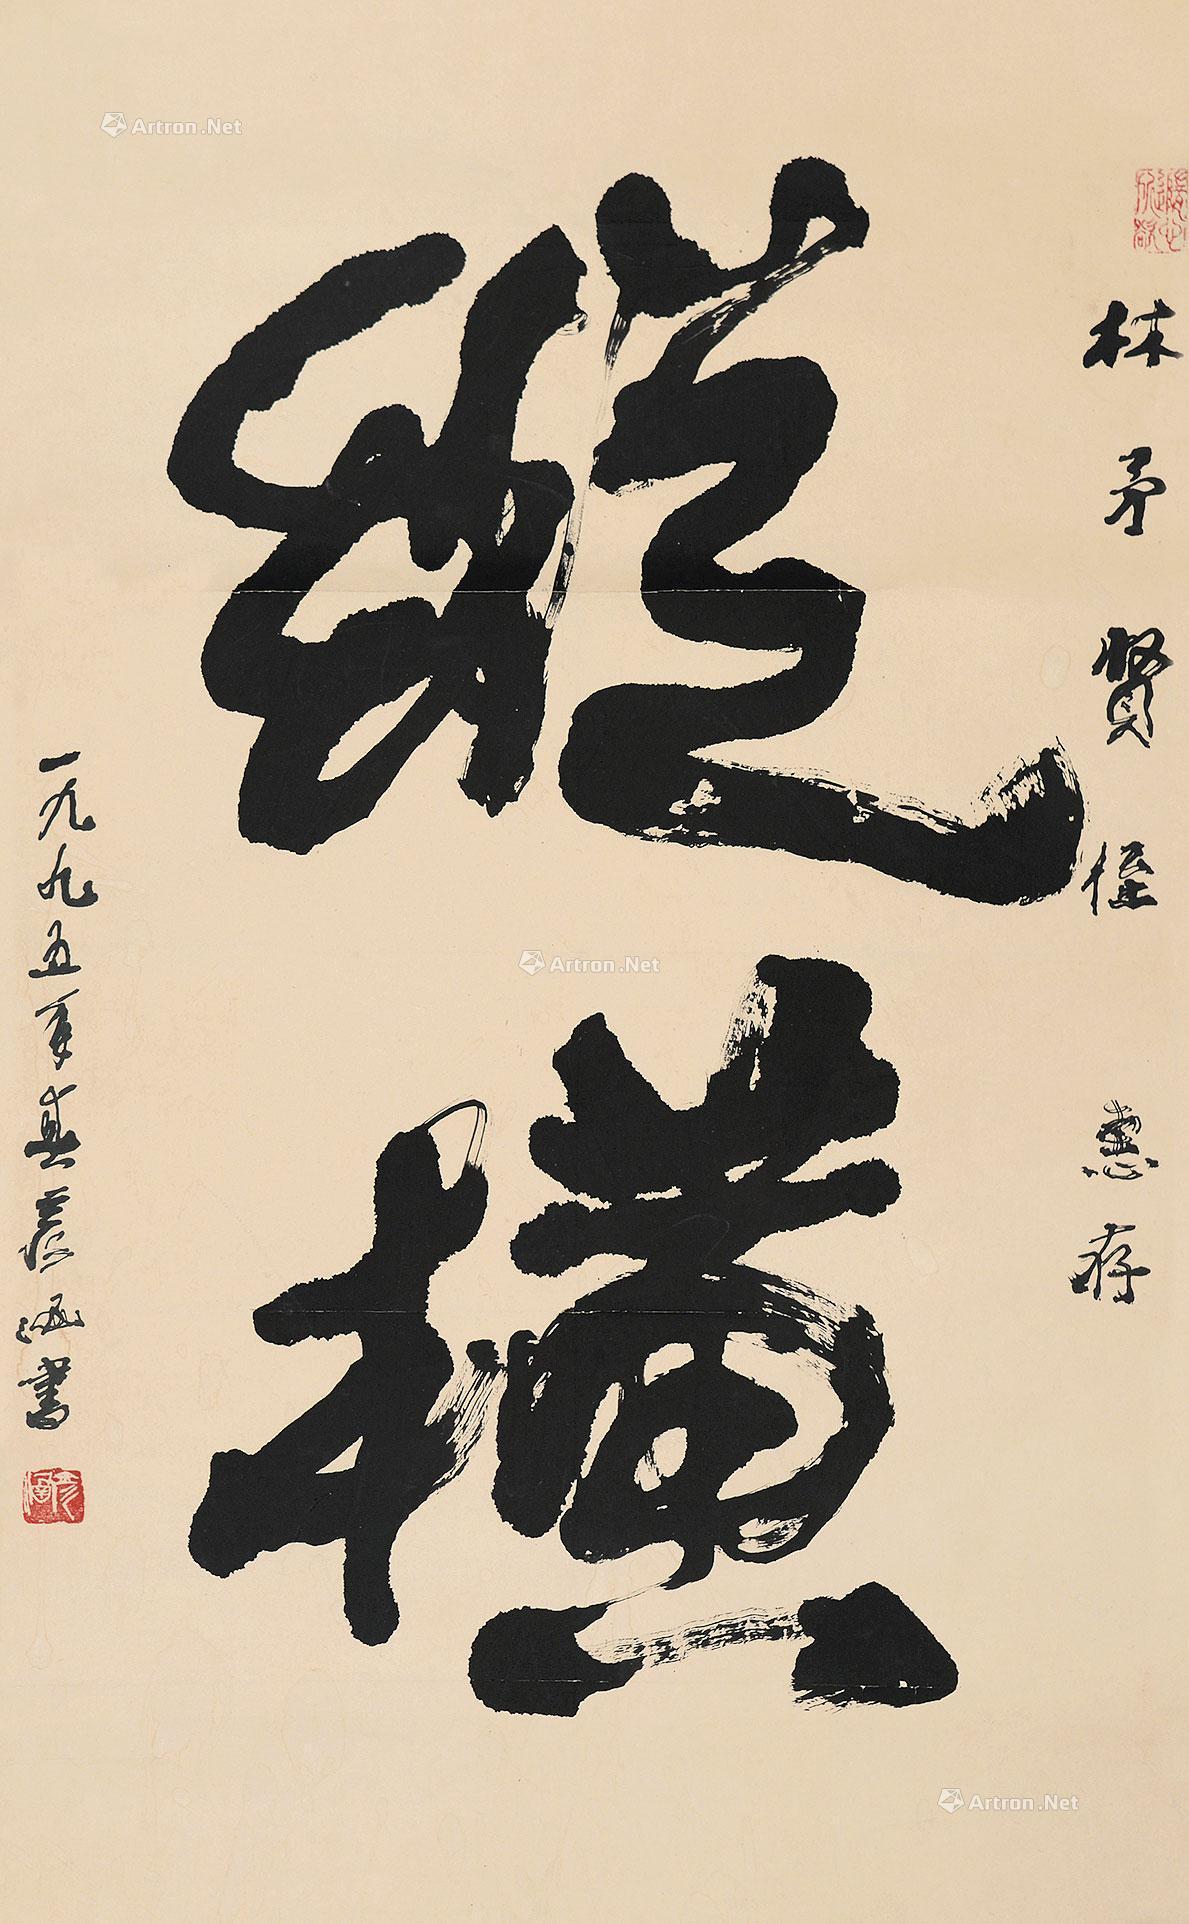 林矛賢侄 惠存
縱橫
一九九五年春彦涵書
Artron.Net
Artron.Net
Artron.Net